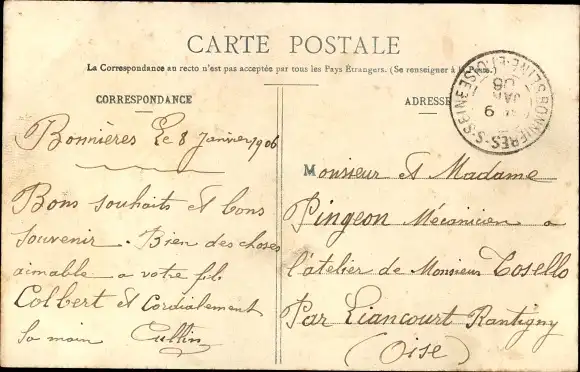 CARTE POSTALE
La Correspondance au recto n'est pas acceptée par tous les Pays Étrangers. (Se renseigner à la Poste.)
CORRESPONDANCE
Bonnières Le 8 Janvier 1906
Bons souhaits et bons
souvenir. Bien des choses
aimable a votre fils
Colbert et Cordialement
la main Cullin
ADRESSE
BONNIERES-S-SEINE
SEINE-ET-OISE
9
JANV
06
Monsieur et Madame
Pingeon Mécanicien a
l'atelier de Monsieur Tosello
Par Liancourt Rantigny
(Oise)